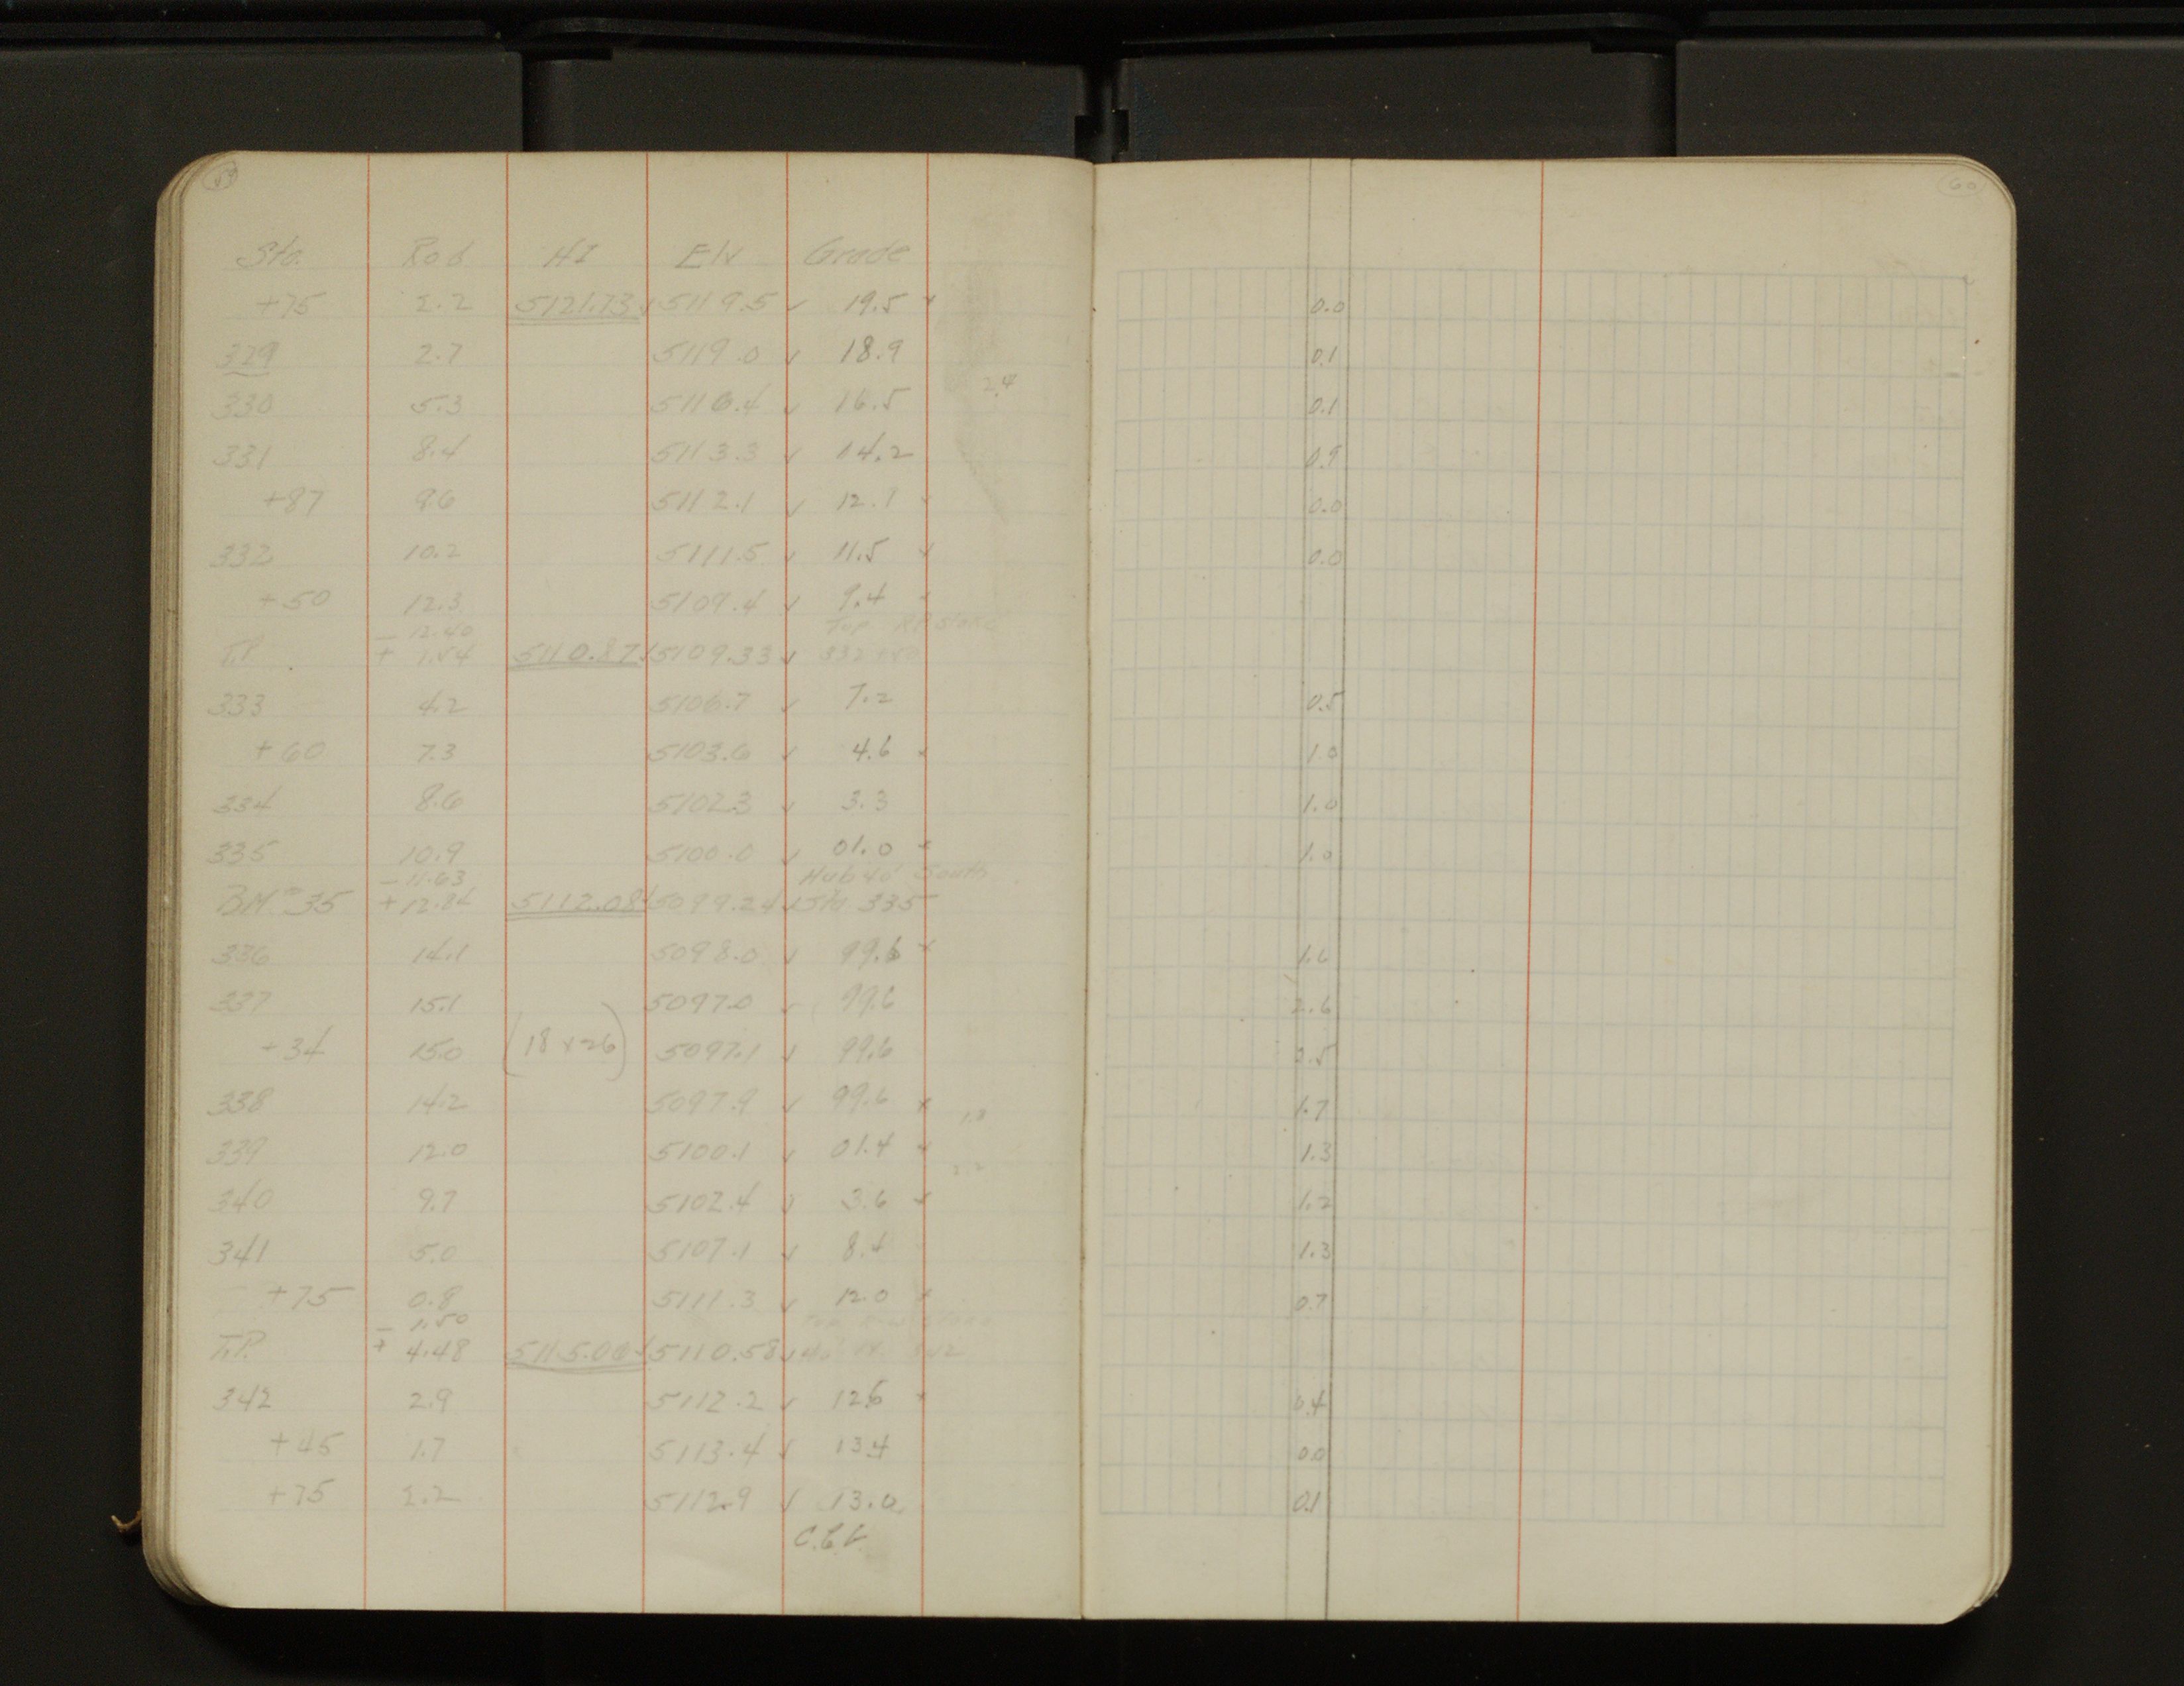 59
60
Sta. Rod HI Elv Grade
+75 2.2 5121.73 ✓ 5119.5 ✓ 19.5 x 0.0
329 2.7 5119.0 ✓ 18.9 0.1
2.4
330 5.3 5116.4 ✓ 16.5 0.1
331 8.4 5113.3 ✓ 14.2 0.9
+87 9.6 5112.1 ✓ 12.1 x 0.0
332 10.2 5111.5 ✓ 11.5 x 0.0
+50 12.3 5109.4 ✓ 9.4 x
- 12.40 Top
T.P. + 1.54 5110.87 ✓ 5109.33 ✓ 332+50
333 4.2 5106.7 ✓ 7.2 0.5
+60 7.3 5103.6 ✓ 4.6 x 1.0
334 8.6 5102.3 ✓ 3.3 1.0
335 10.9 5100.0 ✓ 01.0 x 1.0
- 11.63 Hub 40' South
B.M. #35 + 12.84 5112.08 ✓ 5099.24 ✓ Sta 335
336 14.1 5098.0 ✓ 99.6 x 1.6
337 15.1 5097.0 ✓ 99.6 2.6
+34 15.0 (18x26) 5097.1 ✓ 99.6 2.5
338 14.2 5097.9 ✓ 99.6 x 1.7
339 12.0 5100.1 ✓ 01.4 x 1.3
340 9.7 5102.4 ✓ 3.6 x 1.2
341 5.0 5107.1 ✓ 8.4 1.3
+75 0.8 5111.3 ✓ 12.0 x 0.7
- 1.50
T.P. + 4.48 5115.06 ✓ 5110.58 ✓ 342
342 2.9 5112.2 ✓ 12.6 x 0.4
+45 1.7 5113.4 ✓ 13.4 0.0
+75 2.2 5112.9 ✓ 13.0 0.1